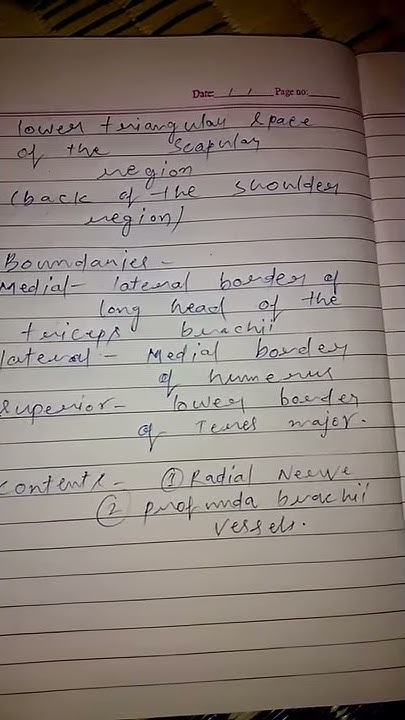 Date: / / Page no:
lower triangular space
of the scapular
region
(back of the shoulder
region)
Boundaries -
Medial - lateral border of
long head of the
triceps brachii
lateral - Medial border
of humerus
Superior - lower border
of Teres major.
Contents - ① Radial Nerve
② profunda brachii
vessels.